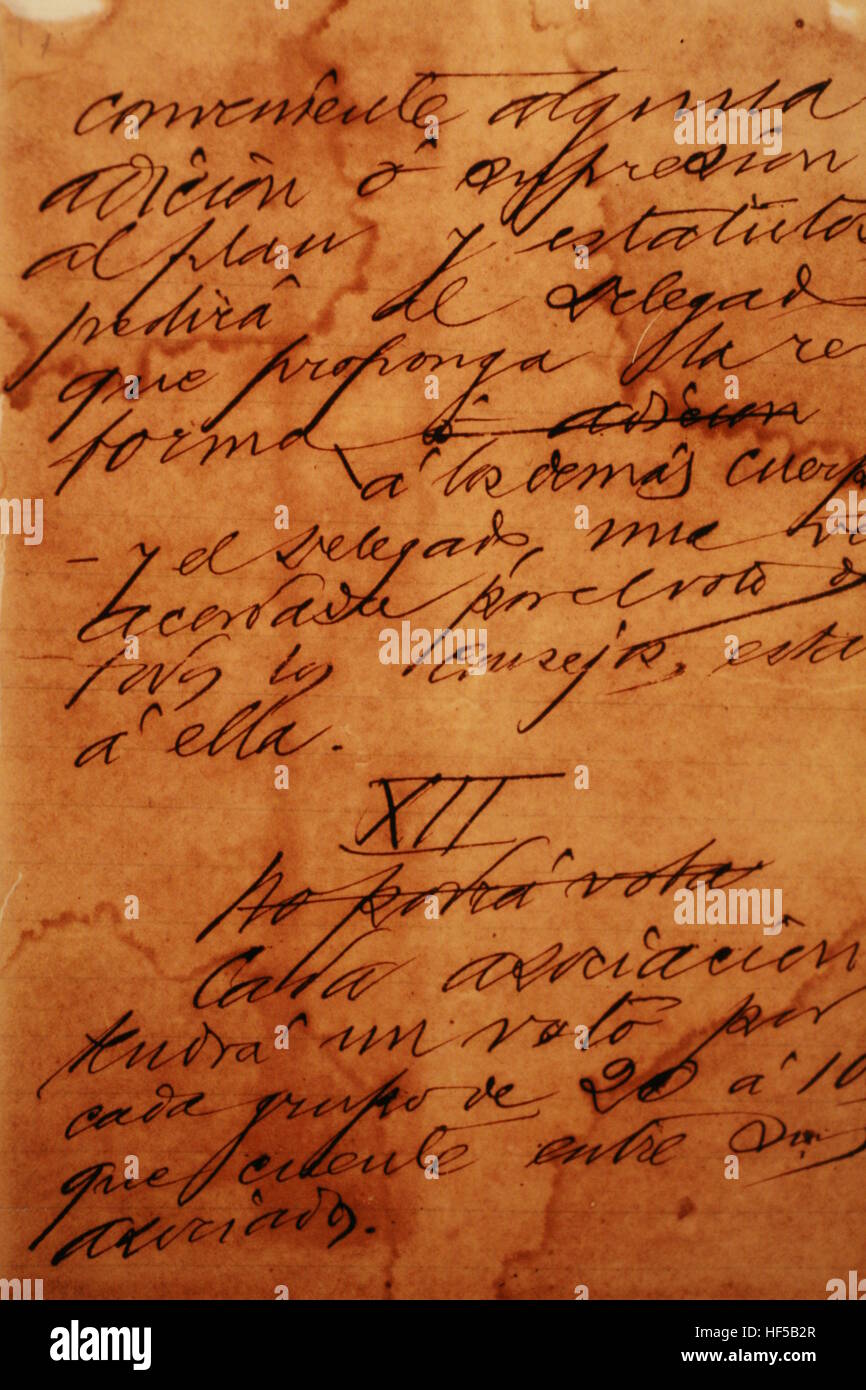 conveniente alguna
adición ó supresión
al plan y estatutos
pedirá al Delegad
que proponga la re
forma ó adicion
á los demás cuerp
– y el Delegado, una v
acordada por el voto d
todos los Consejos, esta
á ella.
XII
No podrá vota
Cada asociación
tendrá un voto por
cada grupo de 20 á 10
que cuente entre sus
asociados.
alamy
Image ID: HF5B2R
www.alamy.com